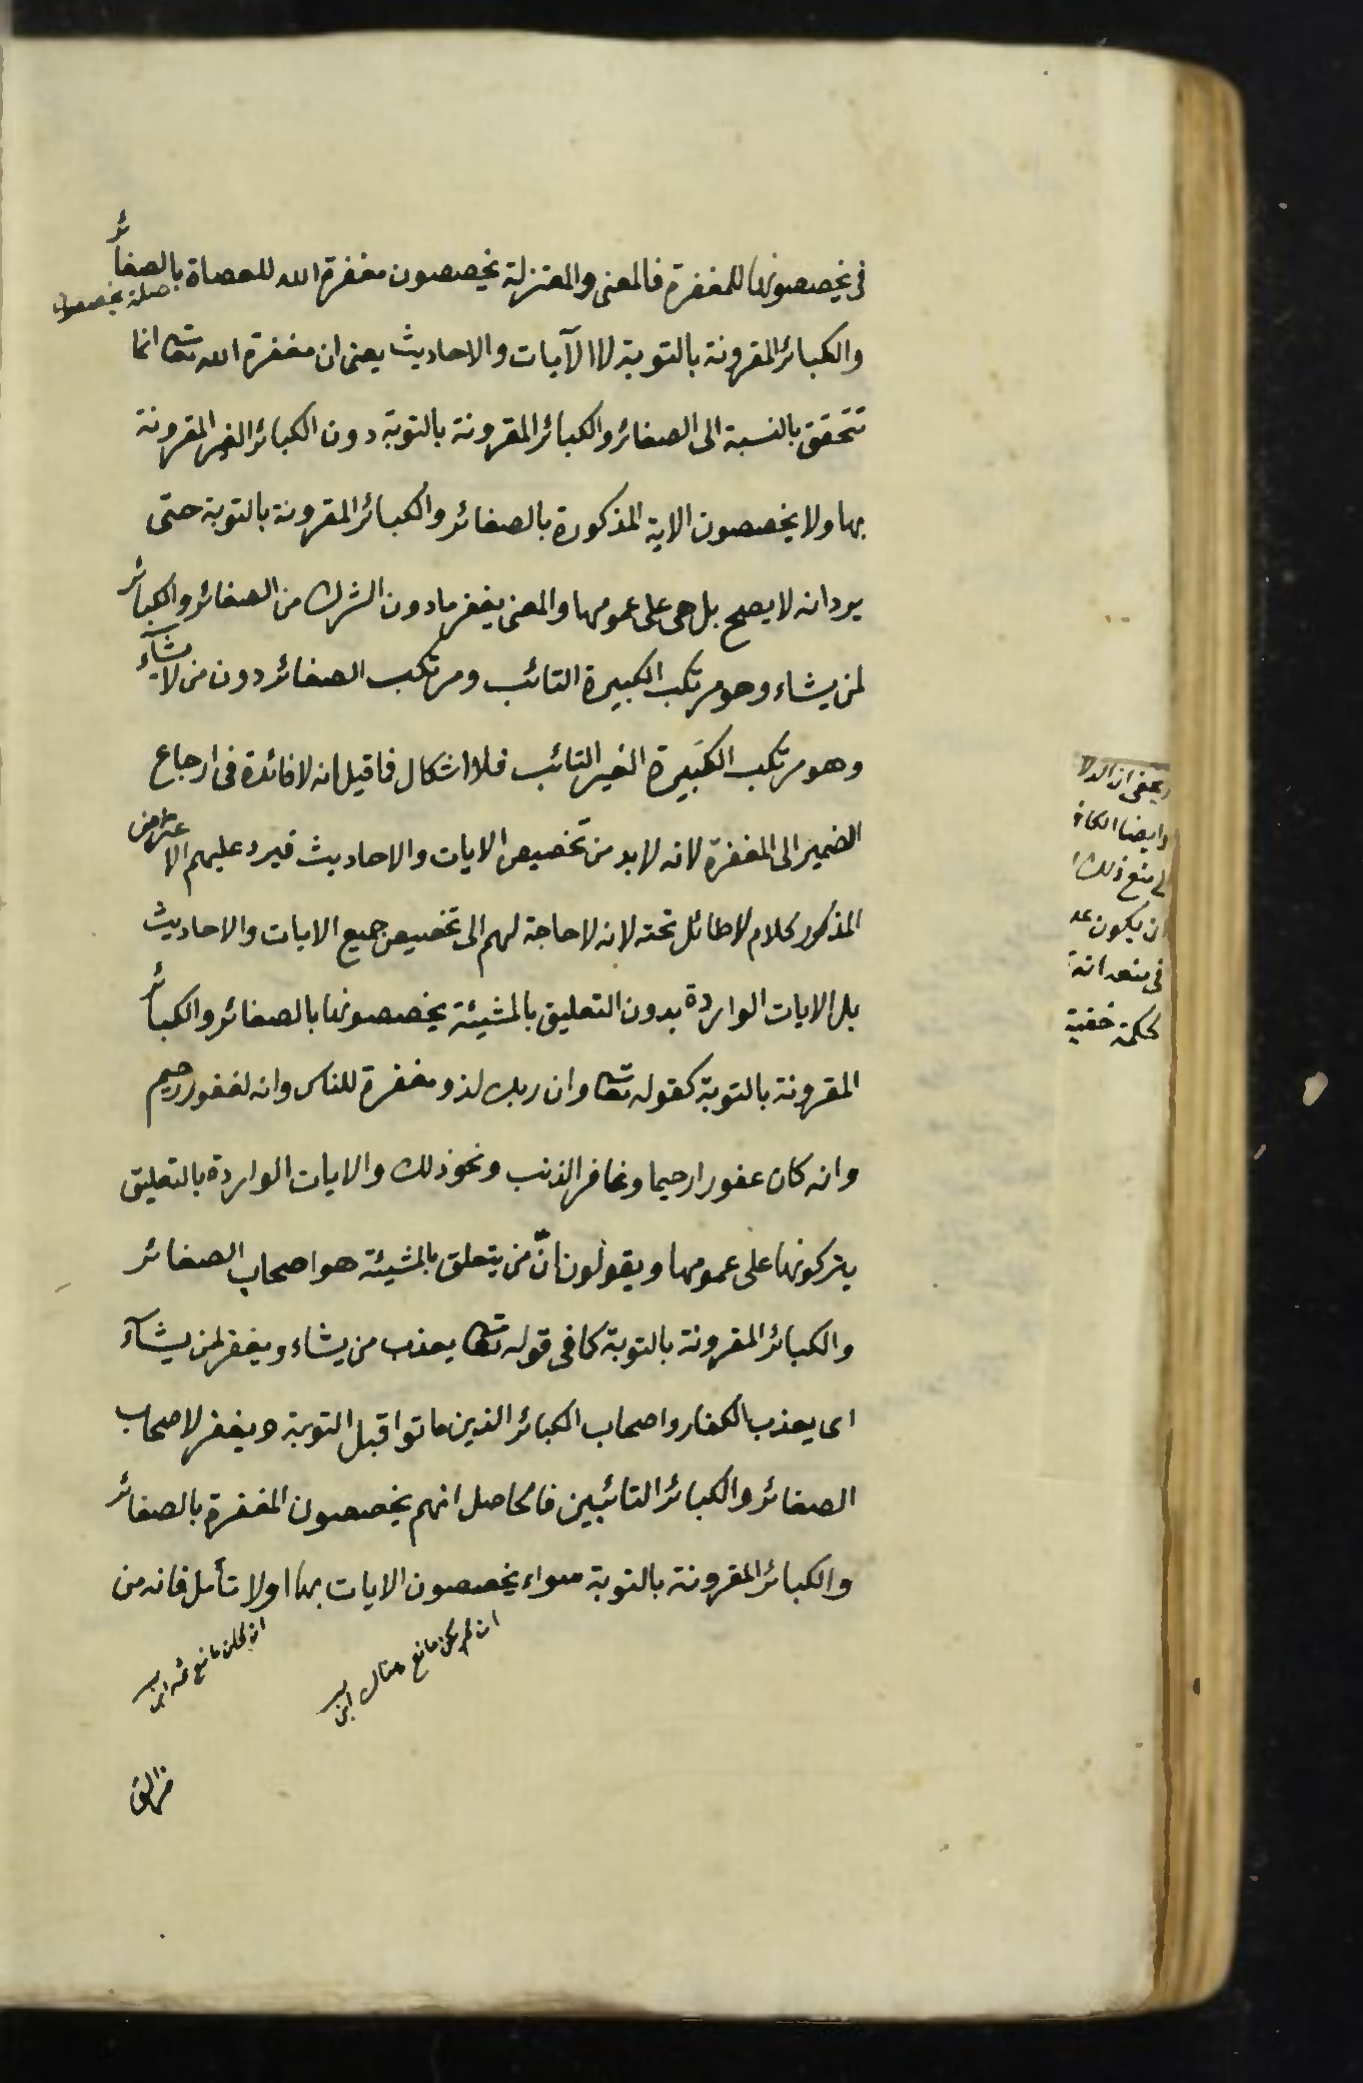 في يخصصونها للمغفرة فالمعنى والمعتزلة يخصصون مغفرة الله للعصاة بالصغائر
صلة يخصصون
والكبائر المقرونة بالتوبة لا الآيات والاحاديث يعنى ان مغفرة الله تعا انما
تتحقق بالنسبة الى الصغائر والكبائر المقرونة بالتوبة دون الكبائر الغير المقرونة
بها ولا يخصصون الاية المذكورة بالصغائر والكبائر المقرونة بالتوبة حتى
يرد انه لا يصح بل هى على عمومها والمعنى يغفر ما دون الشرك من الصغائر والكبائر
لمن يشاء وهو مرتكب الكبيرة التائب ومرتكب الصغائر دون من لا يشاء
وهو مرتكب الكبيرة الغير التائب فلا اشكال فما قيل انه لا فائدة فى ارجاع
الضمير الى المغفرة لانه لا بد من تخصيص الايات والاحاديث فيرد عليهم الاعتراض
المذكور كلام لا طائل تحته لانه لا حاجة لهم الى تخصيص جميع الايات والاحاديث
بل الايات الواردة بدون التعليق بالمشيئة يخصصونها بالصغائر والكبائر
المقرونة بالتوبة كقوله تعا وان ربك لذو مغفرة للناس وانه لغفور رحيم
وانه كان غفورا رحيما وغافر الذنب ونحو ذلك والايات الواردة بالتعليق
يتركونها على عمومها ويقولون انّ من يتعلق بالمشيئة هو اصحاب الصغائر
والكبائر المقرونة بالتوبة كما فى قوله تعا يعذب من يشاء ويغفر لمن يشآء
اى يعذب الكفار واصحاب الكبائر الذين ماتوا قبل التوبة ويغفر لاصحاب
الصغائر والكبائر التائبين فالحاصل انهم يخصصون المغفرة بالصغائر
والكبائر المقرونة بالتوبة سواء يخصصون الايات بها اولا تأمل فانه من
ان لم يكن مانع هناك
وايضا الكا
ان يكون عد
لحكمة خفية